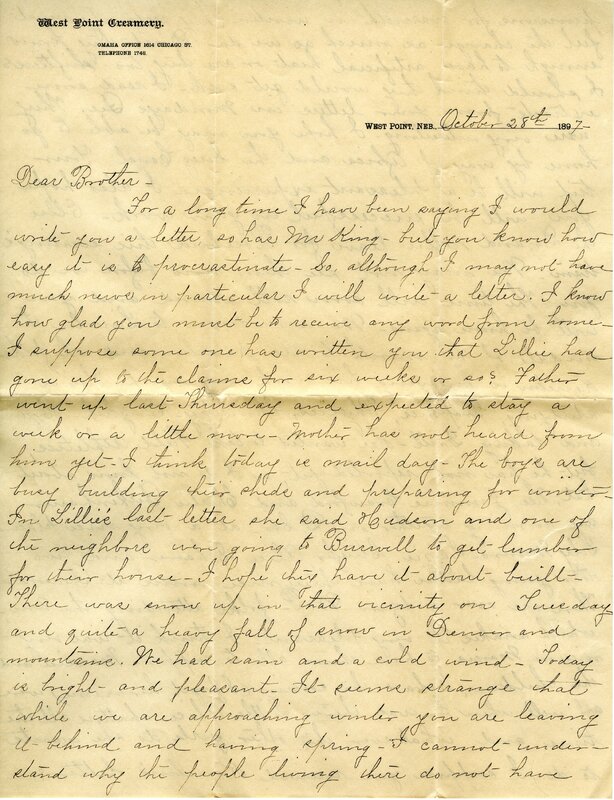 West Point Creamery.
OMAHA OFFICE 1614 CHICAGO ST.
TELEPHONE 1746.
WEST POINT, NEB., October 28th 1897-
Dear Brother -
For a long time I have been saying I would
write you a letter, so has Mr King - but you know how
easy it is to procrastinate - So, although I may not have
much news in particular I will write a letter. I know
how glad you must be to receive any word from home -
I suppose some one has written you that Lillie had
gone up to the claims for six weeks or so? Father
went up last Thursday and expected to stay a
week or a little more - Mother has not heard from
him yet - I think today is mail day - The boys are
busy building their sheds and preparing for winter -
In Lillie's last letter she said Hudson and one of
the neighbors were going to Burwell to get lumber
for their house - I hope they have it about built -
There was snow up in that vicinity on Tuesday
and quite a heavy fall of snow in Denver and
mountains. We had rain and a cold wind - Today
is bright - and pleasant - It seems strange that
while we are approaching winter you are leaving
it behind and having spring - I cannot under-
stand why the people living there do not have